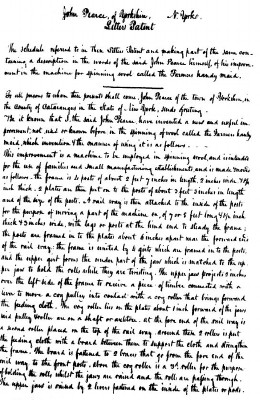 John Pearce, of Yorkshire, N. York.
Letters Patent
The schedule referred to in these Letters Patent and making part of the same con-
taining a description in the words of the said John Pearce himself, of his improve-
ment in the machine for spinning wool called the Farmers handy maid.
To all persons to whom these presents shall come, John Pearce of the town of Yorkshire, in
the County of Cataraugus in the State of New York, sends greeting:
Be it known that I, the said John Pearce have invented a new and useful im-
provement, not used or known before in the spinning of wool called the Farmers handy
maid, which invention & the manner of using it is as follows. . . .
This improvement is a machine to be employed in spinning wool, and is intended
for the use of families and small manufacturing establishments, and is made
as follows. the frame is 4 posts of about 2 feet 7 inches in length, 3 inches wide
inch thick. 2 plates are then put on to the posts of about 3 feet 3 inches in length
and of the size of the posts. A rail way is then attached to the inside of the posts
for the purpose of moving a part of the machine on, of 7 or 8 feet long
thick 4 3 inches wide, with legs or posts at the hind end to steady the frame;
the posts are framed in to the plates about 6 inches apart near the forward
of the rail way: the frame is united by 2 girts which are framed in to the posts,
and the upper girt forms the under part of the jaw which is matched to the up-
per jaw to hold the rolls while they are twisting. The upper jaw projects 3 inches
over the left side of the frame to receive a piece of timber connected with a
lever to move a cog pulley into contact with a cog roller that brings forward
the feeding cloth. The cog roller lies on the plates about 1 inch forward of the jaws
and pulley roller on a shaft at the fore end of the rail way is
a second roller placed on the top of the rail way. around these 2 rollers is put
the feeding cloth with a board between them to support the cloth and strengthen
the frame. The board is fastened to 2 braces that go from the fore end of the
rail way to the front posts. above the cog roller is a 3d. roller for the purpose
of holding the rolls whilst the jaws are raised and the roll are passing through.
The upper jaw is raised by 2 levers fastened on the inside of the plates or posts.